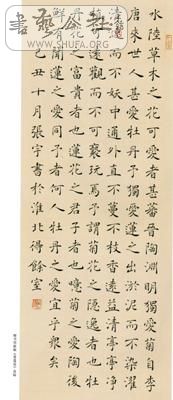 水陸草木之花可愛者甚蕃晉陶淵明獨愛菊自李
唐来世人甚愛牡丹予獨愛蓮之出淤泥而不染濯
清漣而不妖中通外直不蔓不枝香遠益清亭亭淨
植可遠觀而不可褻玩焉予謂菊花之隱逸者也牡
丹花之富貴者也蓮花之君子者也噫菊之愛陶後
鮮有聞蓮之愛同予者何人牡丹之愛宜乎衆矣
己丑十月張宇書於淮北得餘室
WWW.SHUFA.ORG.CN